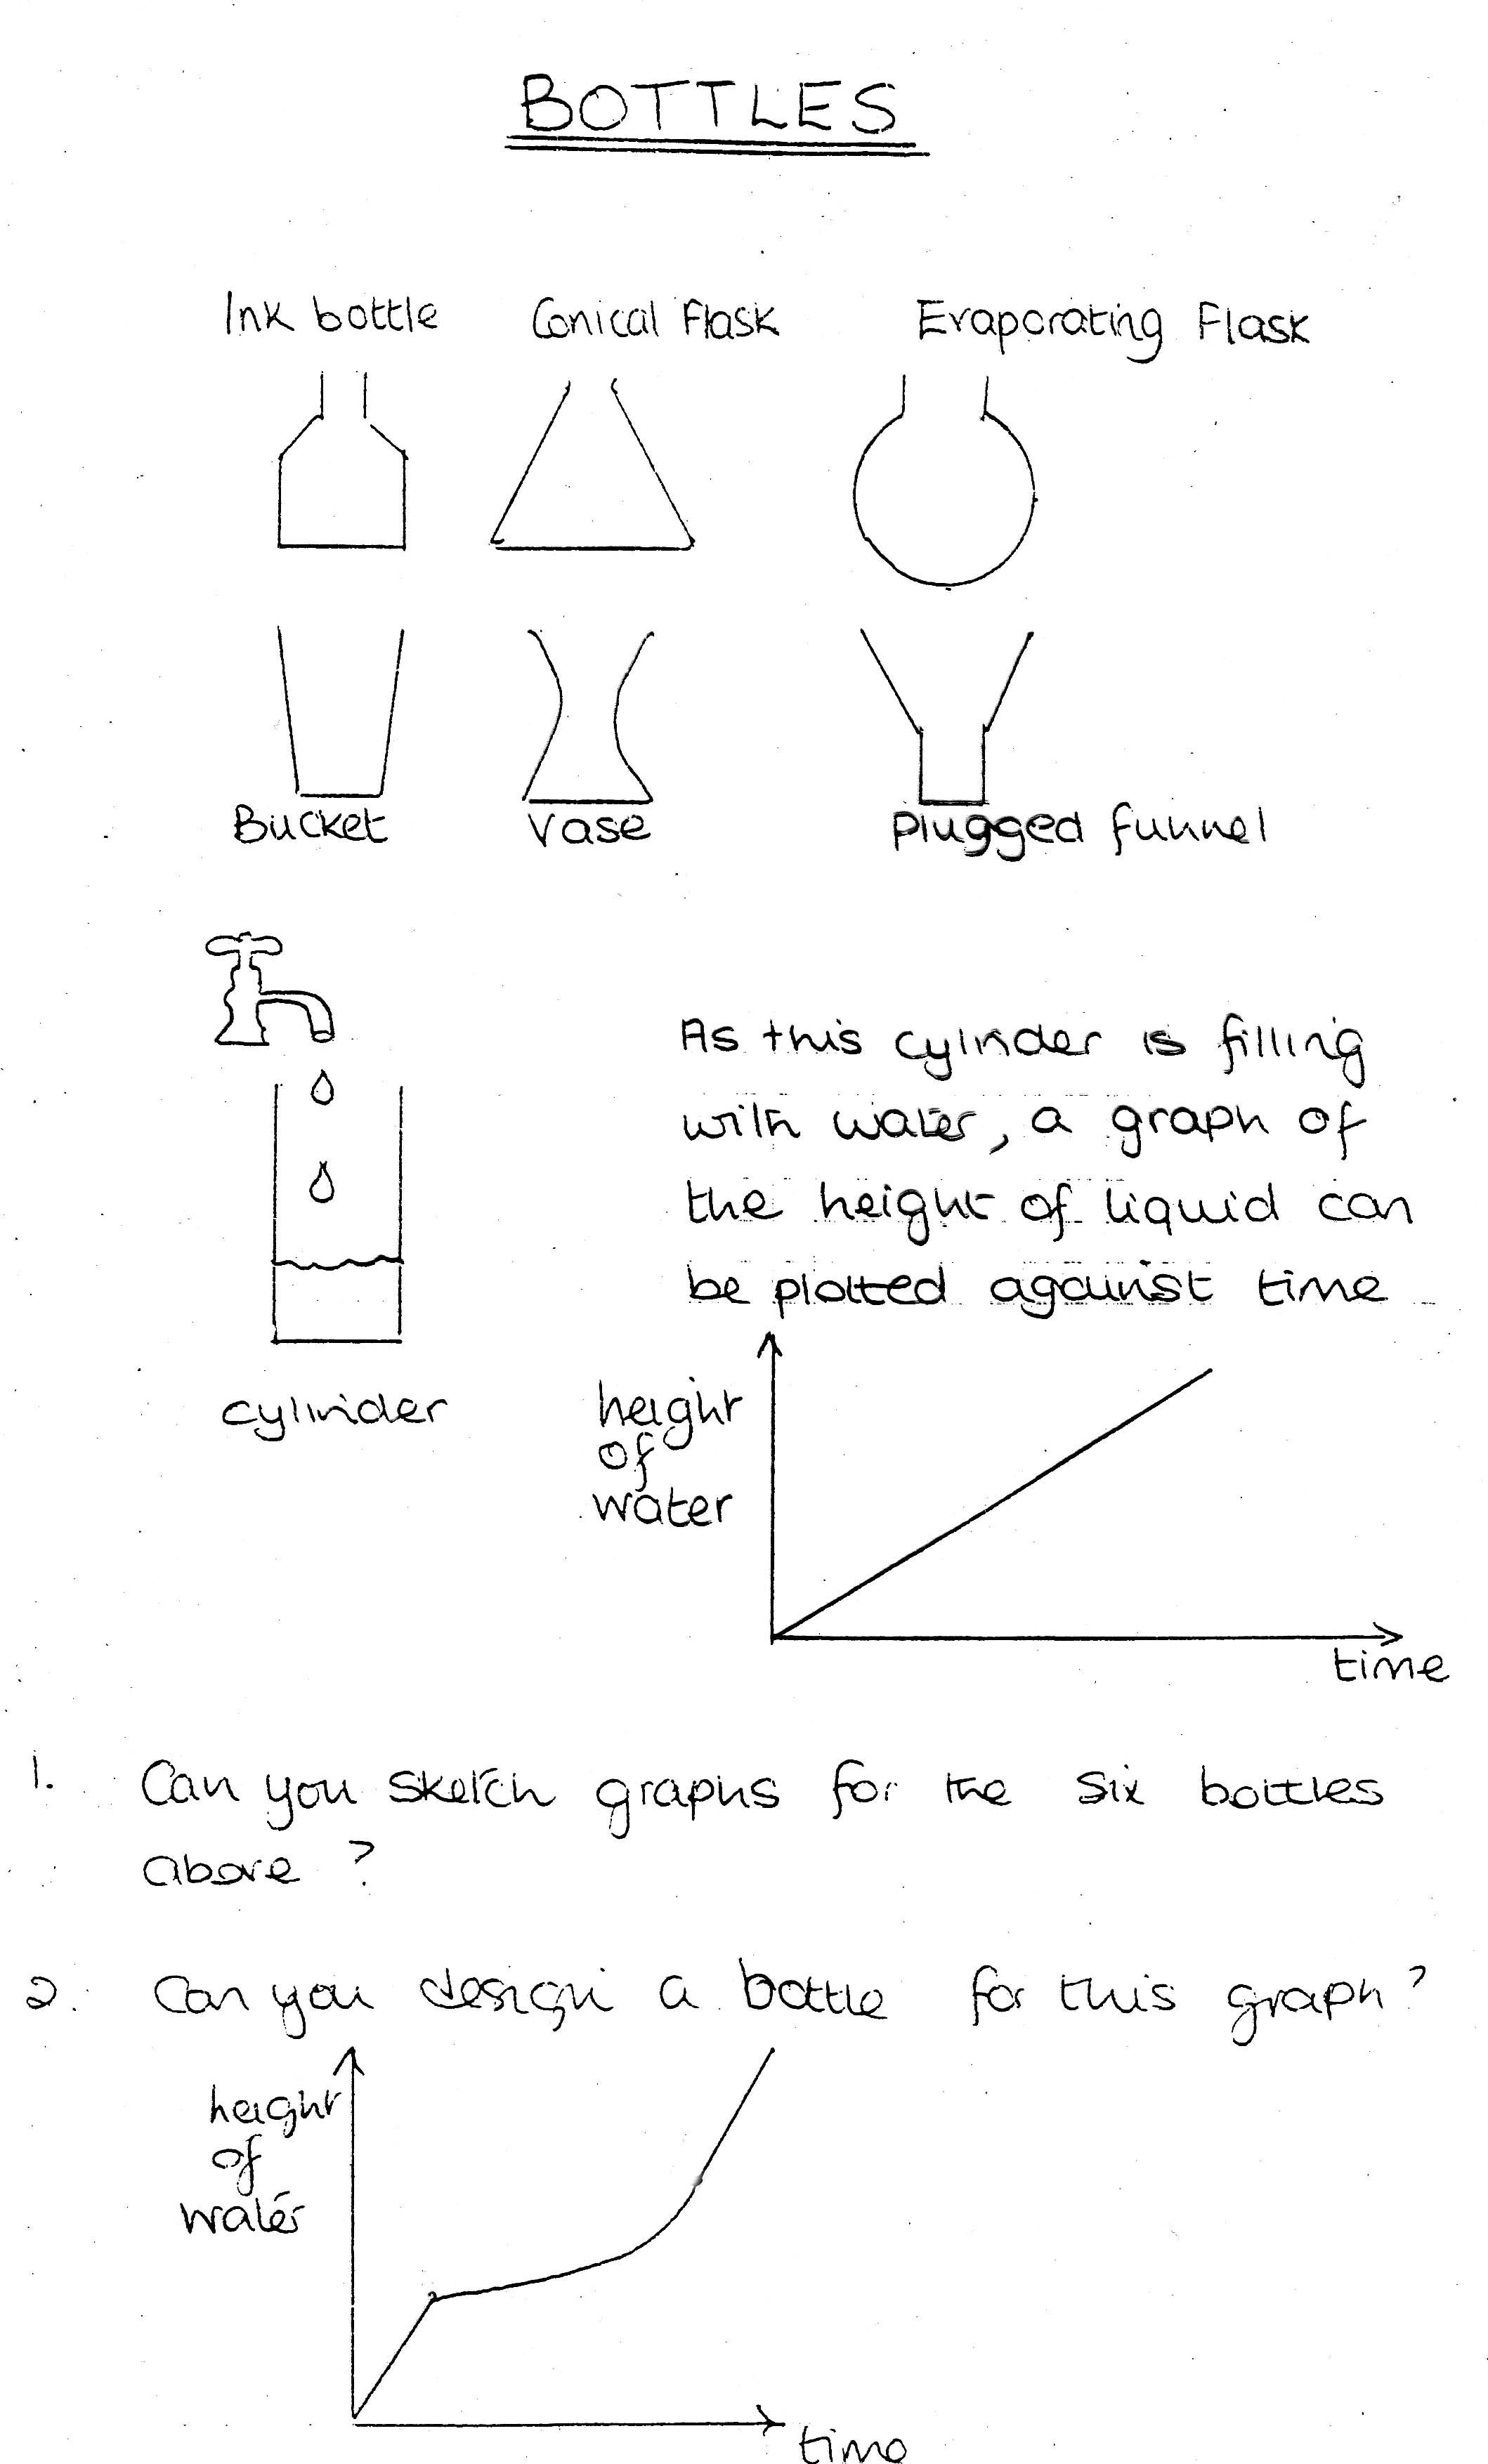 BOTTLES
Ink bottle Conical Flask Evaporating Flask
Bucket Vase Plugged funnel
As this cylinder is filling
with water, a graph of
the height of liquid can
be plotted against time
cylinder
height
of
water
time
1. Can you sketch graphs for the six bottles
above?
2. Can you design a bottle for this graph?
height
of
water
time